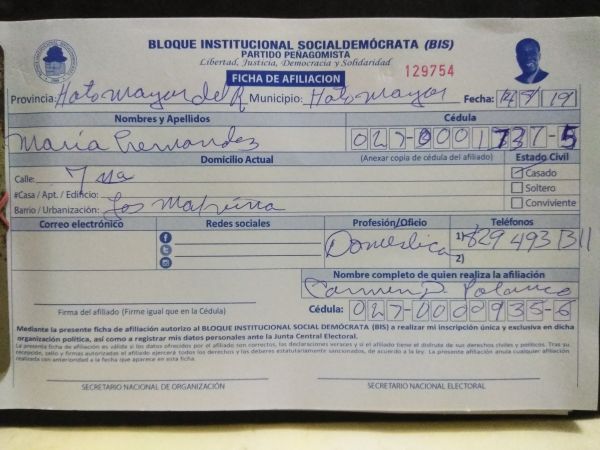 BLOQUE INSTITUCIONAL SOCIALDEMÓCRATA (BIS)
PARTIDO PEÑAGOMISTA
Libertad, Justicia, Democracia y Solidaridad
FICHA DE AFILIACION
129754
Provincia: Hato Mayor del R Municipio: Hato mayor Fecha: 14/8/19
Nombres y Apellidos
Cédula
María Hernandez
027-0001737-5
Domicilio Actual
(Anexar copia de cédula del afiliado)
Estado Civil
Calle:
Casado
#Casa / Apt. / Edificio:
Soltero
Barrio / Urbanización: Los
Conviviente
Correo electrónico
Redes sociales
Profesión/Oficio
Teléfonos
Domestica
1) 829 493 1311
2)
Nombre completo de quien realiza la afiliación
Carmen D. Polanco
Firma del afiliado (Firme igual que en la Cédula)
Cédula: 027-0000935-6
Mediante la presente ficha de afiliación autorizo al BLOQUE INSTITUCIONAL SOCIAL DEMÓCRATA (BIS) a realizar mi inscripción única y exclusiva en dicha
organización política, así como a registrar mis datos personales ante la Junta Central Electoral.
La presente ficha de afiliación es válida si los datos ofrecidos por el afiliado son correctos, las declaraciones veraces y si el afiliado tiene el disfrute de sus derechos civiles y políticos. Tras su
recepción, sello y firmas autorizadas el afiliado ejercerá todos los derechos y los deberes estatutariamente sancionados, de acuerdo a la ley. La presente afiliación anula cualquier afiliación
realizada con anterioridad a la fecha que aparece en esta ficha.
SECRETARIO NACIONAL DE ORGANIZACIÓN
SECRETARIO NACIONAL ELECTORAL